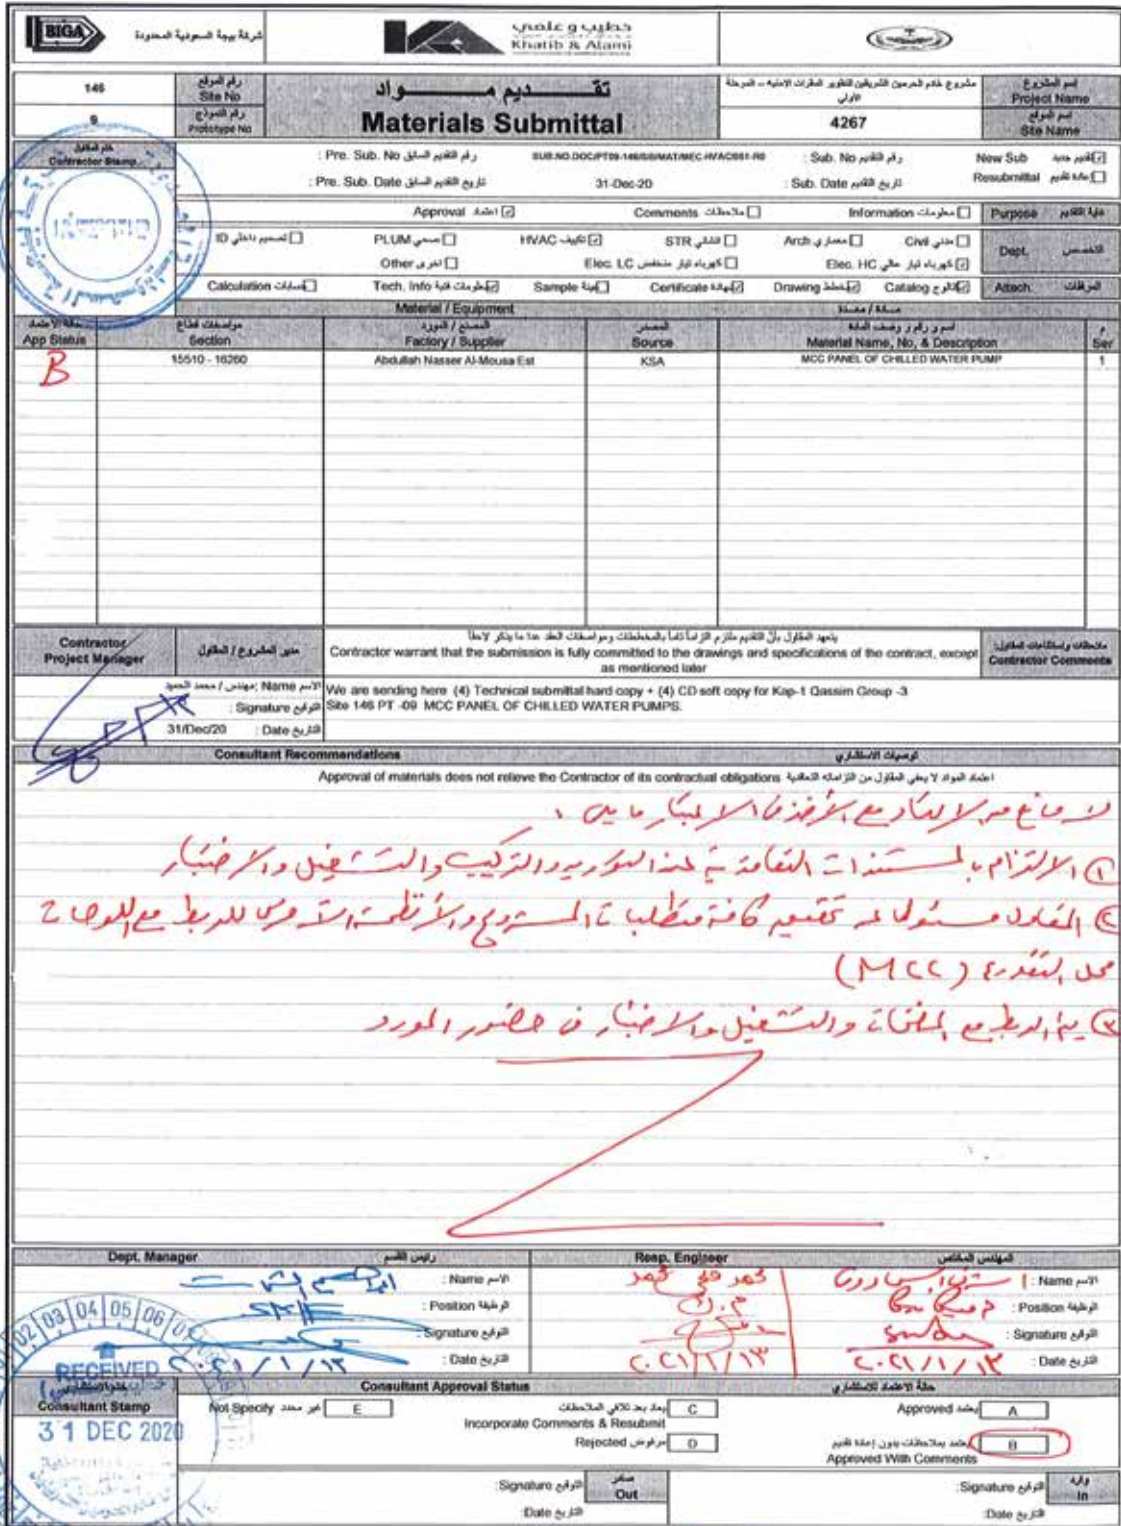 BIGA
شركة بيجة السعودية المحدودة
خطيب و علمي
Khatib & Alami
146
رقم الموقع
Site No
تقديم مواد
Materials Submittal
مشروع خادم الحرمين الشريفين لتطوير المقرات الامنيه – المرحلة الأولي
اسم المشروع
Project Name
9
رقم النموذج
Prototype No
4267
اسم الموقع
Site Name
ختم المقاول
Contractor Stamp
رقم التقديم السابق Pre. Sub. No :
SUB.NO.DOC/PT09-146/SB/MAT/MEC-HVAC081-R0
رقم التقديم Sub. No :
New Sub تقديم جديد
تاريخ التقديم السابق Pre. Sub. Date :
31-Dec-20
تاريخ التقديم Sub. Date :
Resubmittal إعادة تقديم
Approval اعتماد
Comments ملاحظات
Information معلومات
Purpose غاية التقديم
ID تصميم داخلي
PLUM صحي
HVAC تكييف
STR انشائي
Arch معماري
Civil مدني
Other اخرى
Elec. LC كهرباء تيار منخفض
Elec. HC كهرباء تيار عالي
Dept. التخصص
Calculation حسابات
Tech. Info معلومات فنية
Sample عينة
Certificate شهادة
Drawing مخطط
Catalog كتالوج
Attach. المرفقات
Material / Equipment
مادة / معدة
حالة الاعتماد
App Status
مواصفات قطاع
Section
المصنع / المورد
Factory / Supplier
المصدر
Source
اسم و رقم و وصف المادة
Material Name, No, & Description
م
Ser
B
15510 - 16260
Abdullah Nasser Al-Mousa Est
KSA
MCC PANEL OF CHILLED WATER PUMP
1
Contractor Project Manager
مدير المشروع / المقاول
يتعهد المقاول بأن التقديم ملتزم التزاماً تاماً بالمخططات ومواصفات العقد عدا ما يذكر لاحقاً
Contractor warrant that the submission is fully committed to the drawings and specifications of the contract, except as mentioned later
ملاحظات واستثناءات المقاول:
Contractor Comments
الاسم Name : مهندس / محمد الحميد
We are sending here (4) Technical submittal hard copy + (4) CD soft copy for Kap-1 Qassim Group -3
التوقيع Signature :
Site 146 PT -09 MCC PANEL OF CHILLED WATER PUMPS.
31/Dec/20
التاريخ Date :
Consultant Recommendations
توصيات الاستشاري
Approval of materials does not relieve the Contractor of its contractual obligations اعتماد المواد لا يعفي المقاول من التزاماته التعاقدية
لا مانع من الاعتماد مع الأخذ في الاعتبار ما يلي :
① الالتزام بالمستندات التعاقدية عند التوريد والتركيب والتشغيل والاختبار
② المقاول مسئول عن تحقيق كافة متطلبات المشروع والأنظمة الأخرى للربط مع اللوحات
محل التقديم (MCC)
③ يتم الربط مع المضخات والتشغيل والاختبار في حضور المورد
Dept. Manager
رئيس القسم
Resp. Engineer
المهندس المختص
الاسم Name :
محمد فتحي محمد
الاسم Name :
الوظيفة Position :
م.ك
الوظيفة Position :
التوقيع Signature :
التوقيع Signature :
التاريخ Date :
٢٠٢١/١/١٣
٢٠٢١/١/١٣
التاريخ Date :
٢٠٢١/١/١٣
02 03 04 05 06
RECEIVED
31 DEC 2020
Consultant Stamp
Consultant Approval Status
حالة الاعتماد للاستشاري
Not Specify غير محدد E
يعاد بعد تلافي الملاحظات C
Incorporate Comments & Resubmit
Approved يعتمد A
Rejected مرفوض D
يعتمد بملاحظات بدون إعادة تقديم B
Approved With Comments
التوقيع Signature:
صادر
Out
التوقيع Signature:
وارد
In
التاريخ Date:
التاريخ Date: